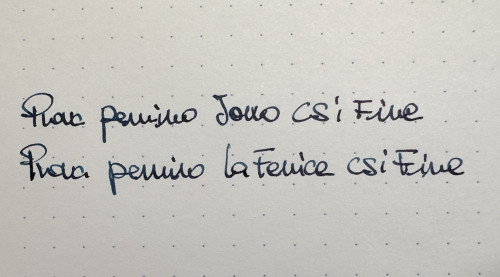 Prova pennino Jowo CSI Fine
Prova pennino La Fenice CSI Fine